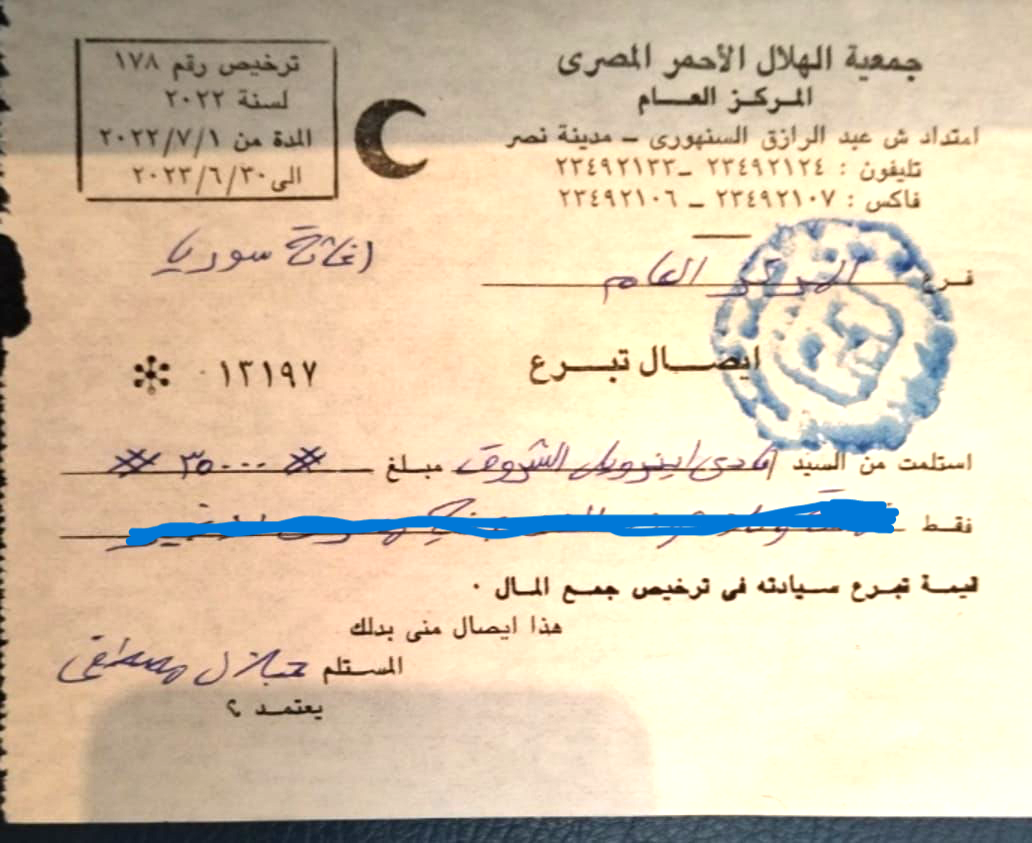 جمعية الهلال الأحمر المصرى
المركز العام
امتداد ش عبد الرازق السنهورى – مدينة نصر
تليفون : ٢٣٤٩٢١٢٤ – ٢٣٤٩٢١٣٣
فاكس : ٢٣٤٩٢١٠٧ – ٢٣٤٩٢١٠٦
ترخيص رقم ١٧٨
لسنة ٢٠٢٢
المدة من ٢٠٢٢/٧/١
الى ٢٠٢٣/٦/٣٠
اغاثة سوريا
فرع المركز العام
ايصال تبرع
١٣١٩٧
استلمت من السيد نادى اينرويل الشروق مبلغ # ٣٥٠٠٠ #
فقط
قيمة تبرع سيادته فى ترخيص جمع المال ٠
هذا ايصال منى بذلك
المستلم مصطفى
يعتمد ؟